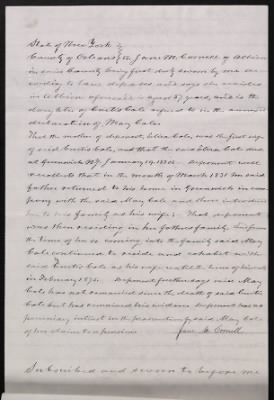 State of New York }
County of Orleans } ss Jane M. Cornell of Albion
in said County being first duly sworn by me ac-
cording to law deposes and says she resides
in Albion aforesaid is aged 57 years, and is the
daughter of Curtis Cole referred to in the annexed
declaration of May Cole.
That the mother of deponent, Cole, was the first wife
of said Curtis Cole, and that the said Cole died
at Greenwich N.Y. January 19. Deponent well
recollects that in the month of March 1831 her said
father returned to his home in Greenwich in com-
pany with the said May Cole and there introduced
her to his family as his wife. That deponent
was then residing in her father's family &
the time of her so coming into the family said May
Cole continued to reside and cohabit with
said Curtis Cole as his wife until the time of his death
in February. Deponent further says said May
Cole has not remarried since the death of said Curtis
Cole but has remained his widow. Deponent has no
pecuniary interest in the prosecution by said May Cole
of her claim to a pension.
Jane M. Cornell
Subscribed and sworn to before me